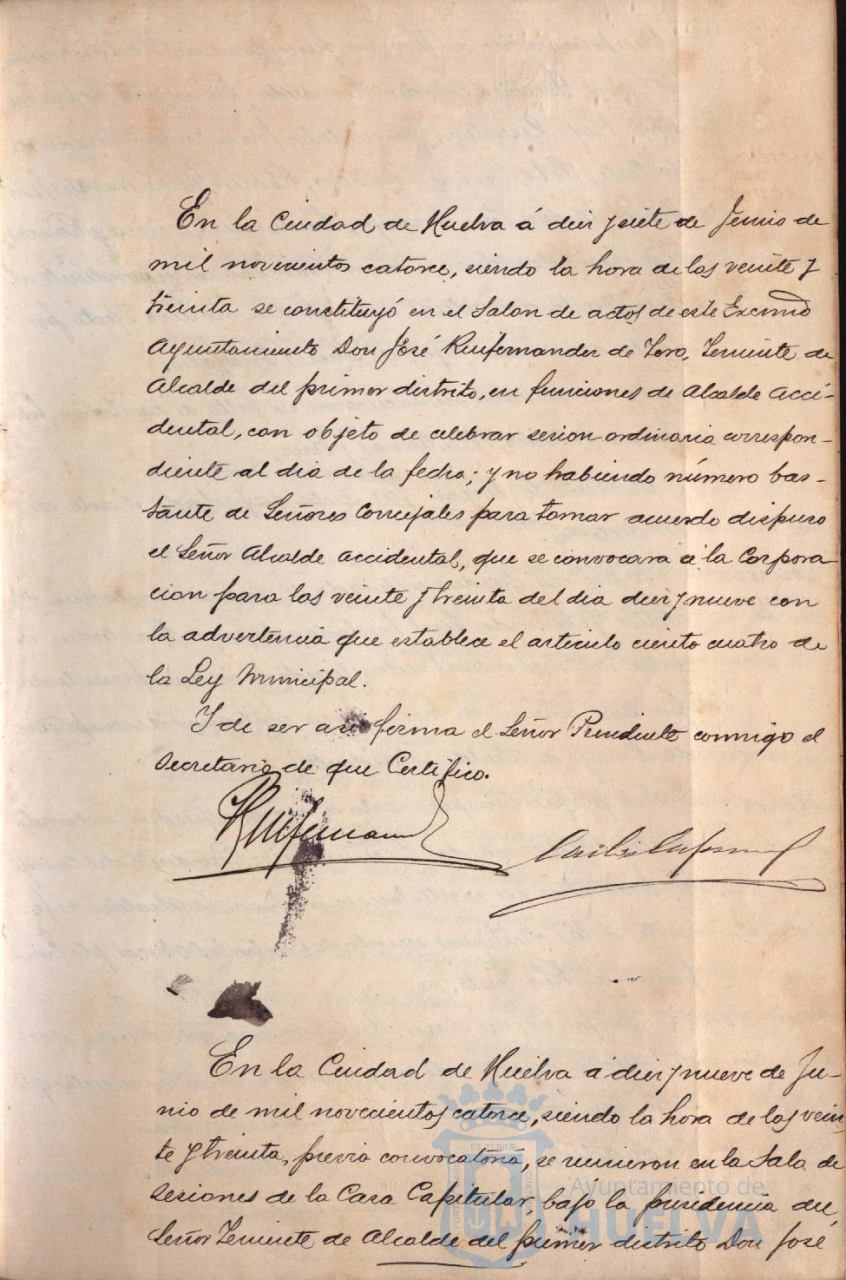 En la Ciudad de Huelva á diez y siete de Junio de
mil novecientos catorce, siendo la hora de las veinte y
treinta se constituyó en el Salon de actos de este Excmo
Ayuntamiento Don José Ruifernandez de Toro, Teniente de
Alcalde del primer distrito, en funciones de Alcalde Acci-
dental, con objeto de celebrar sesion ordinaria correspon-
diente al dia de la fecha; y no habiendo número bas-
tante de Señores Concejales para tomar acuerdo dispuso
el Señor Alcalde accidental, que se convocara á la Corpora
cion para las veinte y treinta del dia diez y nueve con
la advertencia que establece el articulo ciento cuatro de
la Ley Municipal.
Y de ser asi firma el Señor Presidente conmigo el
Secretario de que Certifico.
Ruifernandez
En la Ciudad de Huelva á diez y nueve de Ju-
nio de mil novecientos catorce, siendo la hora de las vein-
te y treinta, previa convocatoria, se reunieron en la Sala de
Sesiones de la Casa Capitular, bajo la presidencia del
Señor Teniente de Alcalde del primer distrito Don José
Ayuntamiento de
HUELVA